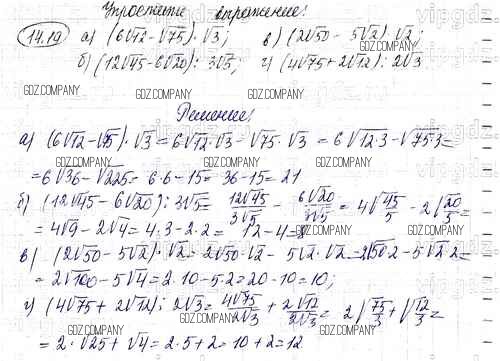 Упростите выражение:
14.19 а) (6√12-√75)·√3; в) (2√50 - 5√2)·√2;
б) (12√45-6√20) : 3√5; г) (4√75+2√12) : 2√3
Решение:
а) (6√12-√75)·√3 = 6√12·√3 - √75·√3 = 6√12·3 - √75·3 =
= 6√36 - √225 = 6·6 - 15 = 36-15 = 21
б) (12√45-6√20) : 3√5 = 12√45/3√5 - 6√20/3√5 = 4√45/5 - 2√20/5 =
= 4√9 - 2√4 = 4·3 - 2·2 = 12-4=8
в) (2√50-5√2)·√2 = 2√50·√2 - 5√2·√2 = 2√50·2 - 5√2·2 =
= 2√100 - 5√4 = 2·10 - 5·2 = 20-10 = 10;
г) (4√75+2√12) : 2√3 = 4√75/2√3 + 2√12/2√3 = 2√75/3 + √12/3 =
= 2·√25 + √4 = 2·5+2 = 10+2 = 12.
GDZ.COMPANY
vipgdz